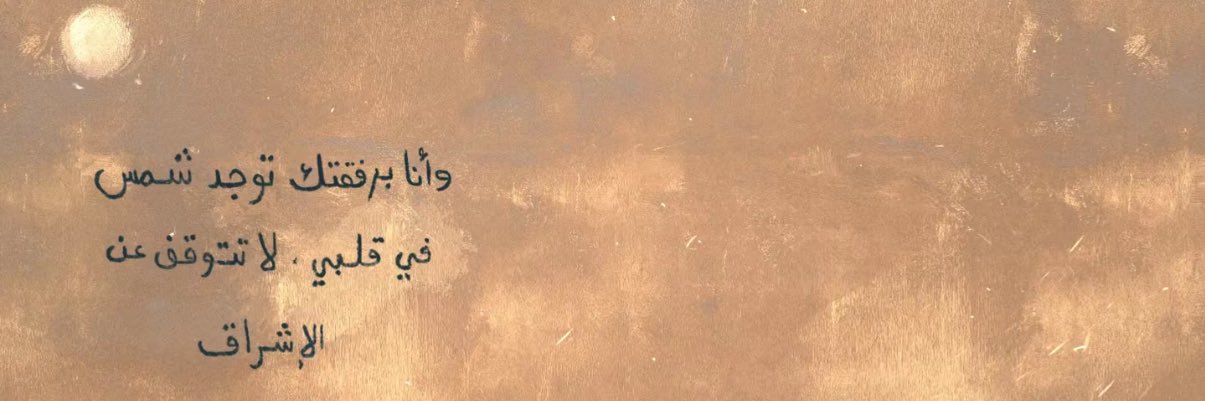 وأنا برفقتك توجد شمس
في قلبي . لا تتوقف عن
الإشراق